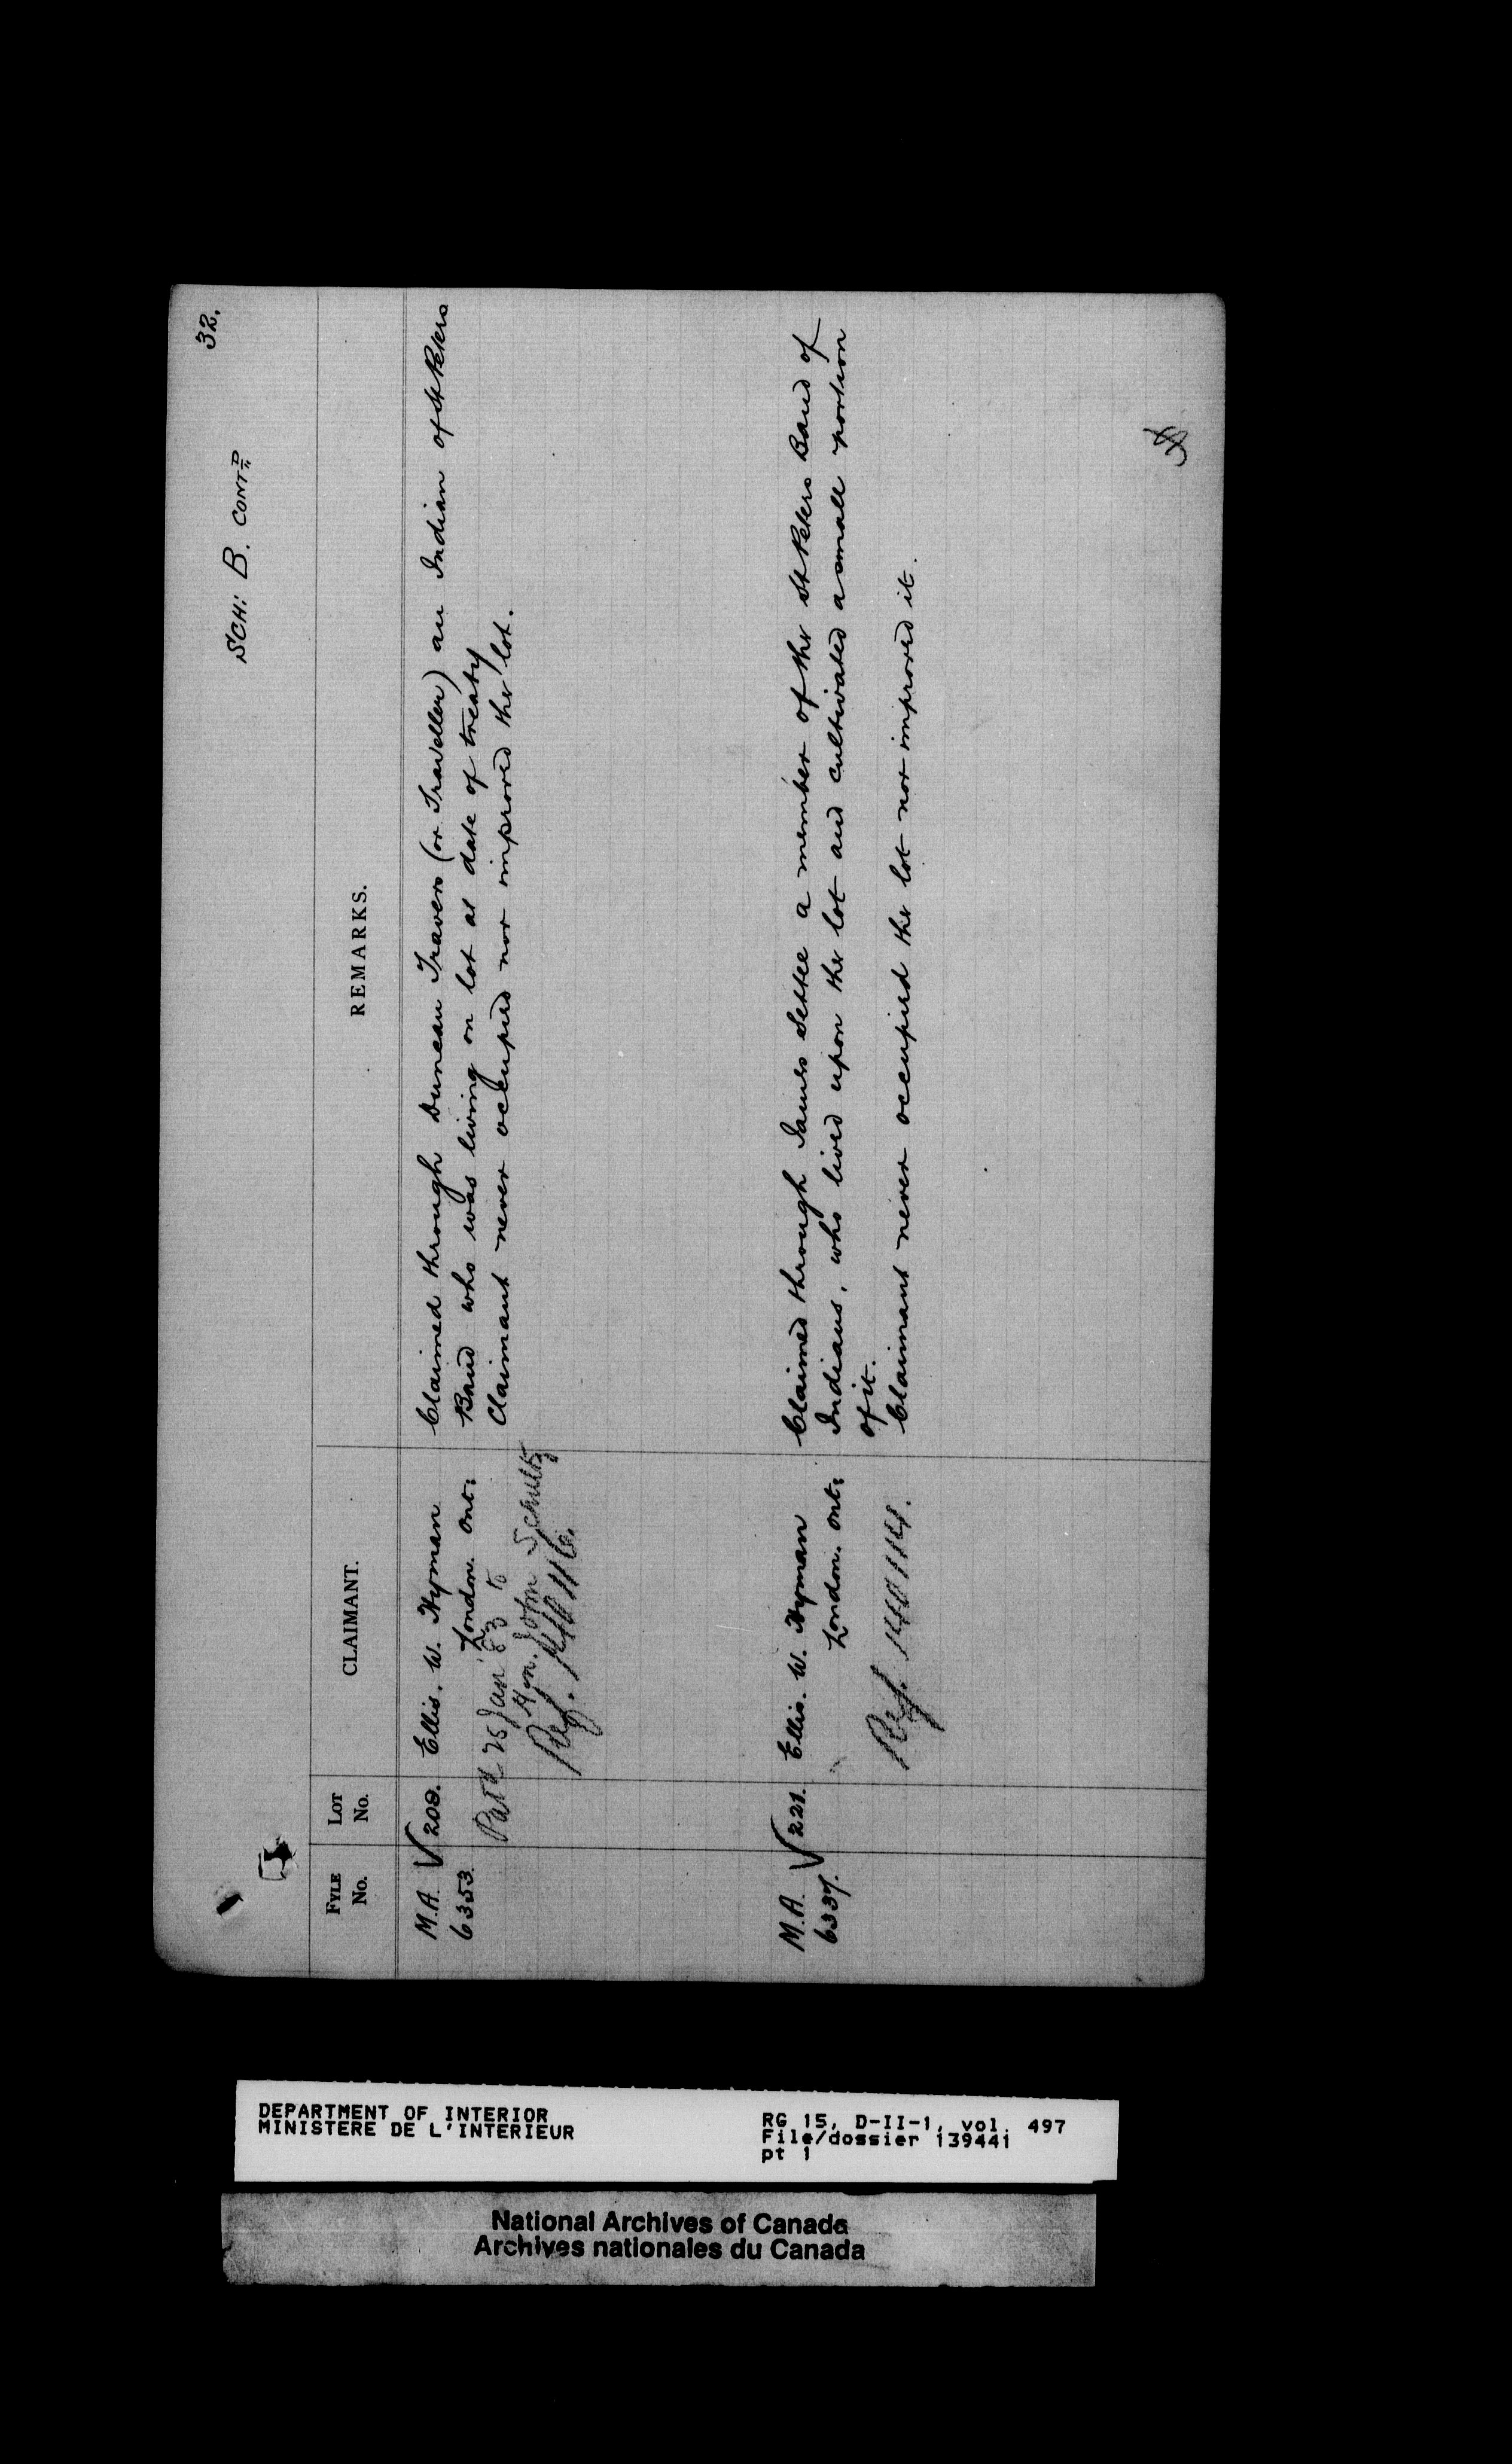 32.
SCH: B. CONT<sup>D</sup>
FYLE No.
LOT No.
CLAIMANT.
REMARKS.
M.A. 6353.
√ 208.
Ellis. W. Hyman
London. Ont:
Pat'd 25 Jan '83 to
Hon. John Schultz
Ref. 140116.
Claimed through Duncan Travers (or Traveller) an Indian of St Peters
Band who was living on lot at date of treaty
Claimant never occupied nor improved the lot.
M.A. 6337.
√ 221.
Ellis. W. Hyman
London. Ont:
Ref. 140114.
Claimed through James Settee a member of the St Peters Band of
Indians, who lived upon the lot and cultivated a small portion
of it.
Claimant never occupied the lot nor improved it.
DEPARTMENT OF INTERIOR
MINISTERE DE L'INTERIEUR
RG 15, D-II-1, vol. 497
File/dossier 139441
pt 1
National Archives of Canada
Archives nationales du Canada